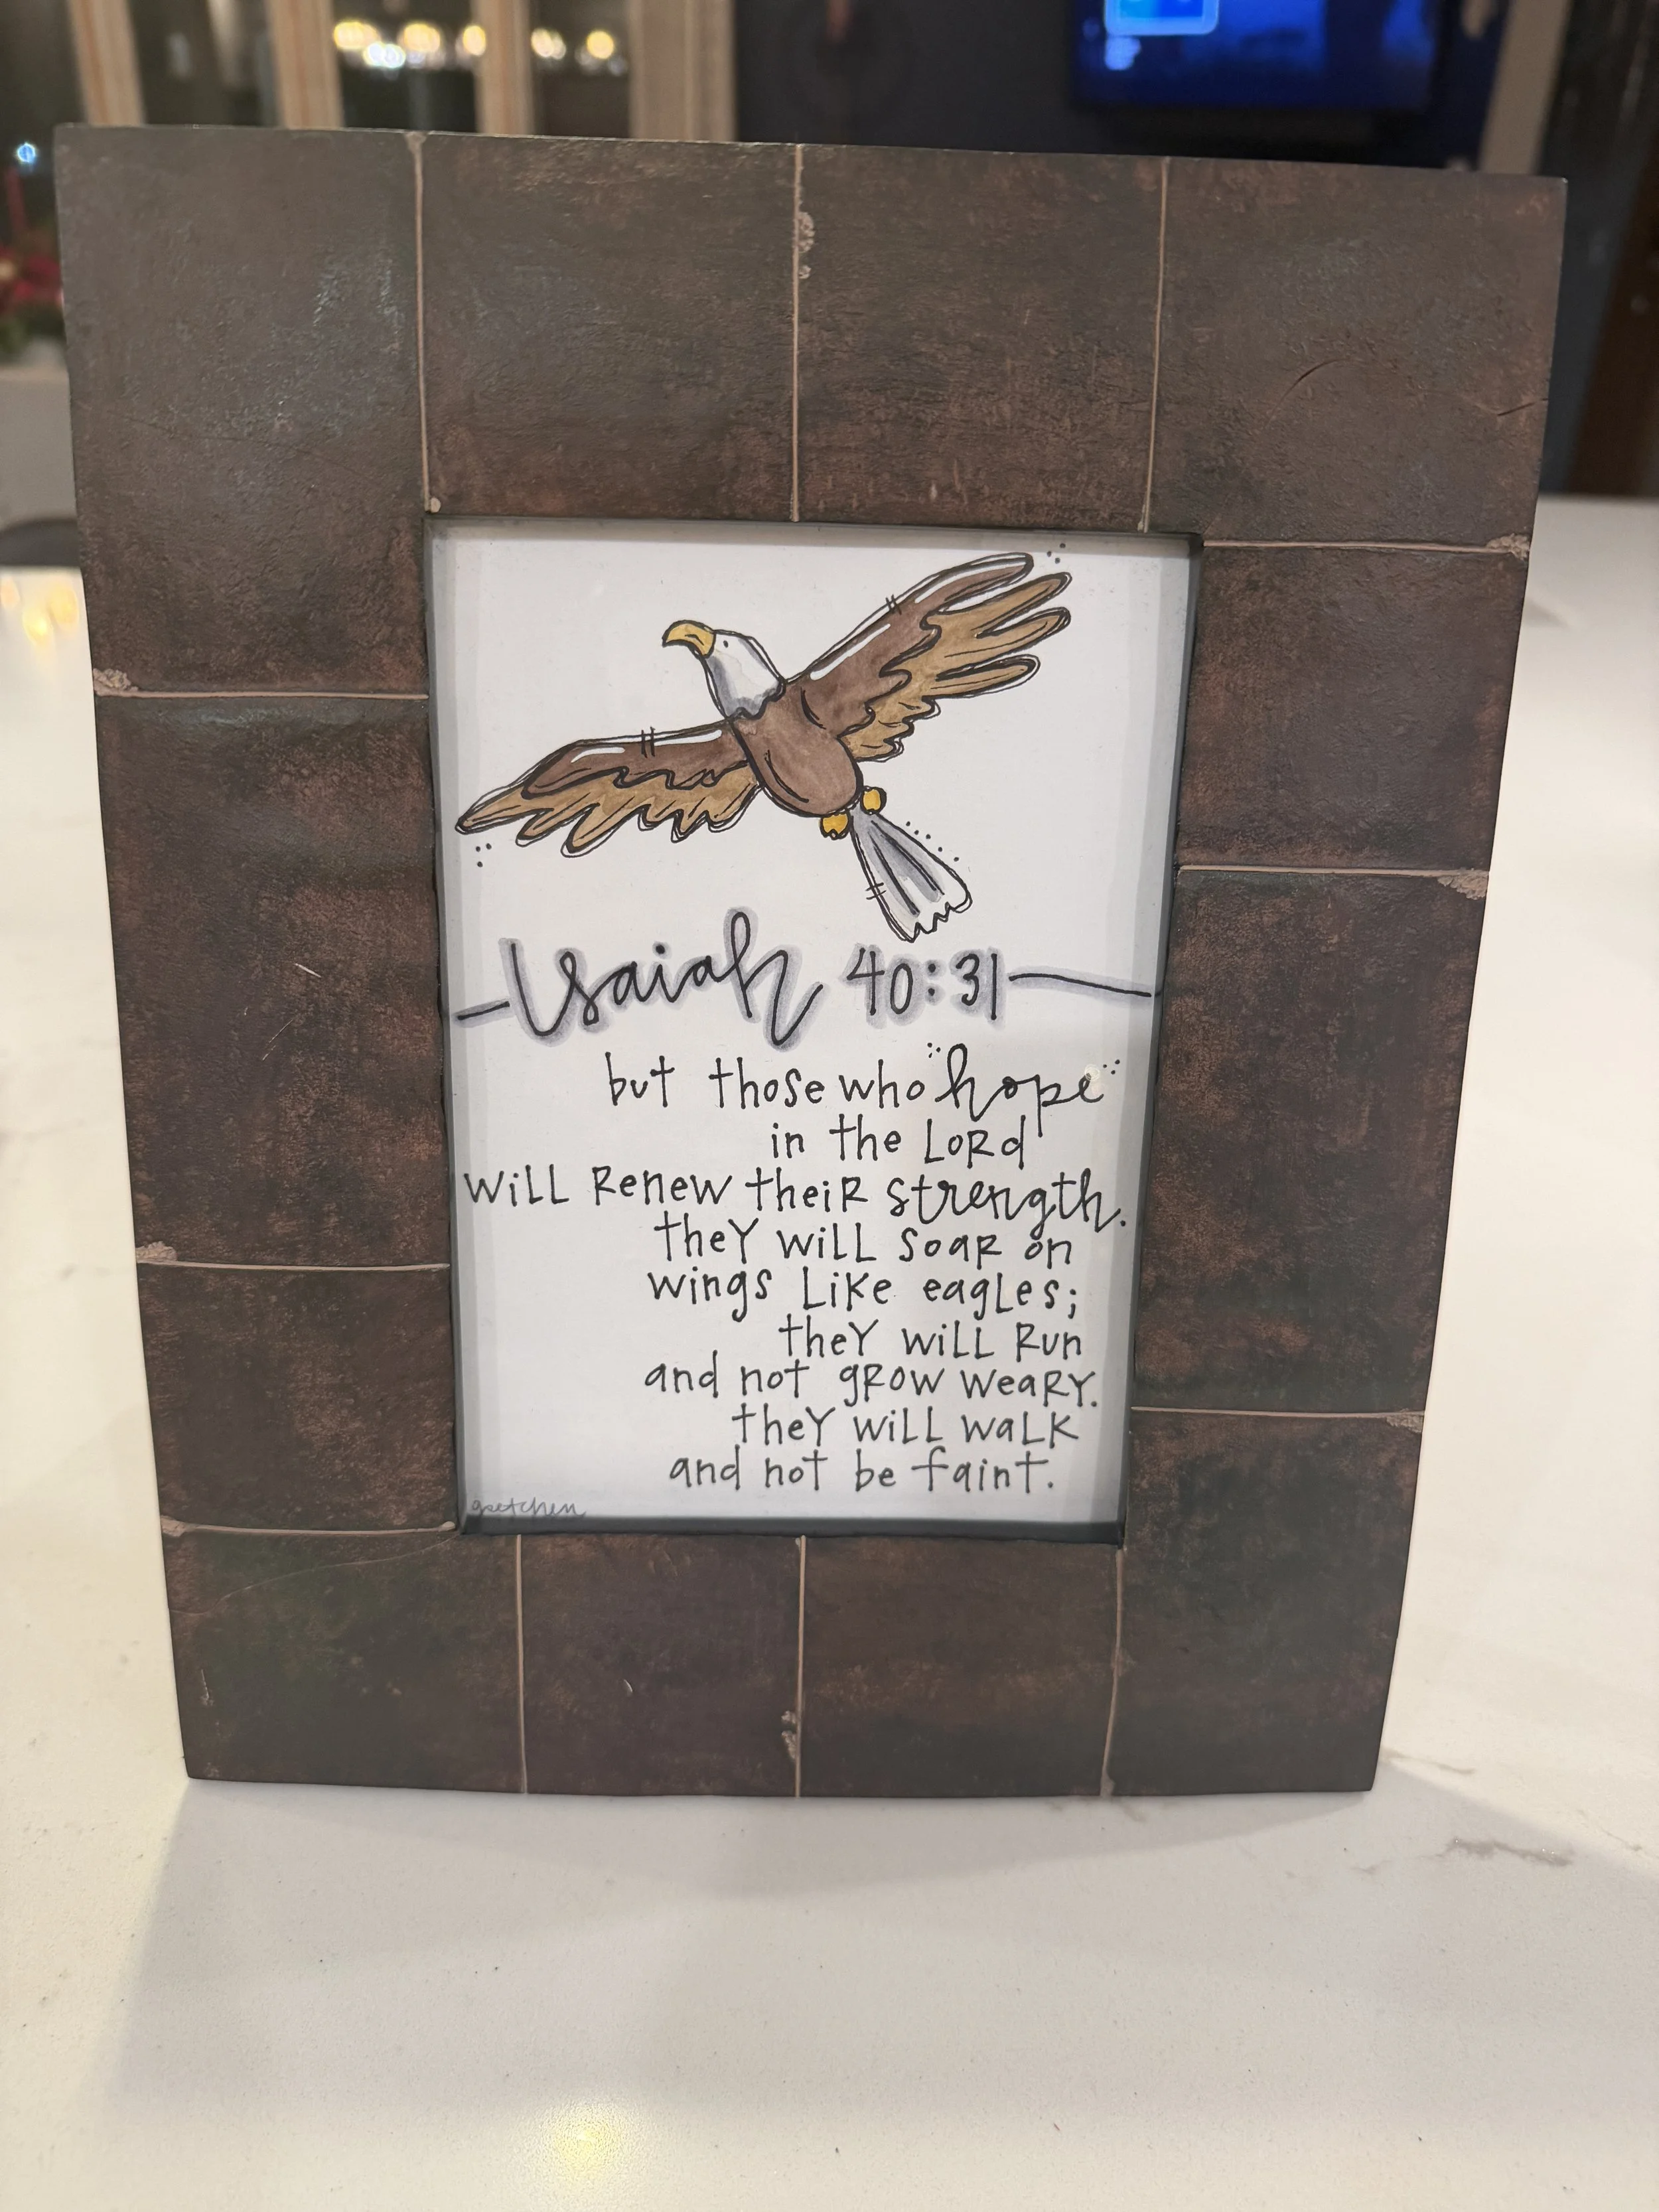 Isaiah 40:31
but those who hope
in the Lord
will renew their strength.
they will soar on
wings like eagles;
they will run
and not grow weary.
they will walk
and not be faint.
gretchen